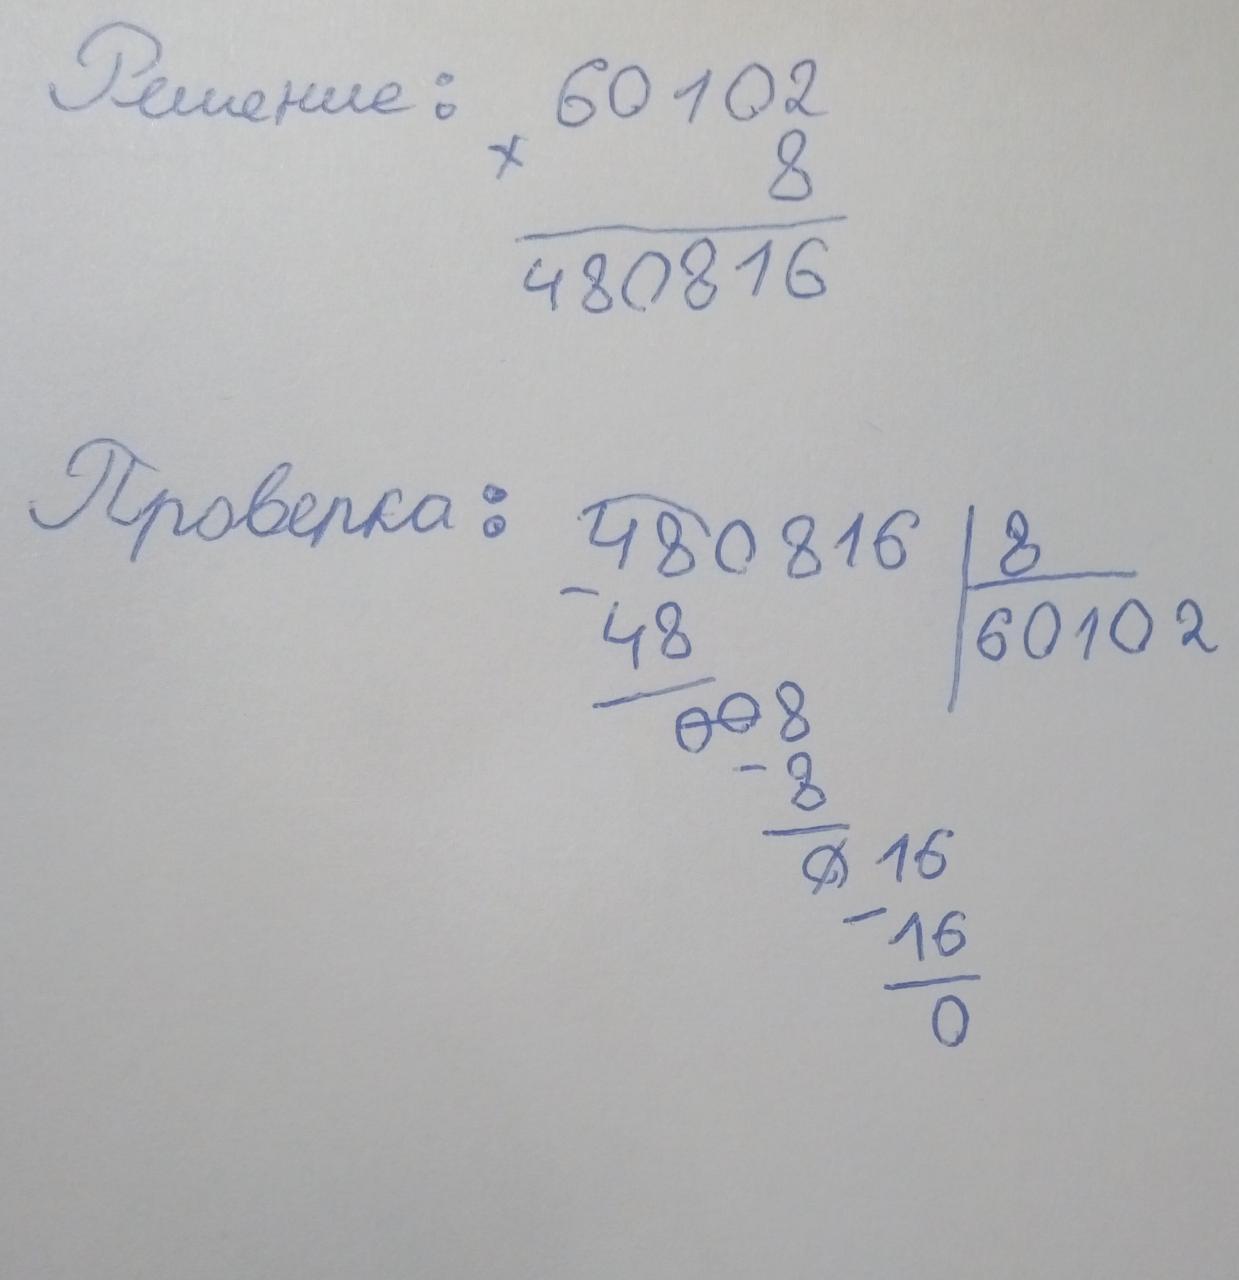 Решение: 60102
× 8
480816
Проверка: 480816 | 8
- 48 60102
008
- 8
0 16
- 16
0